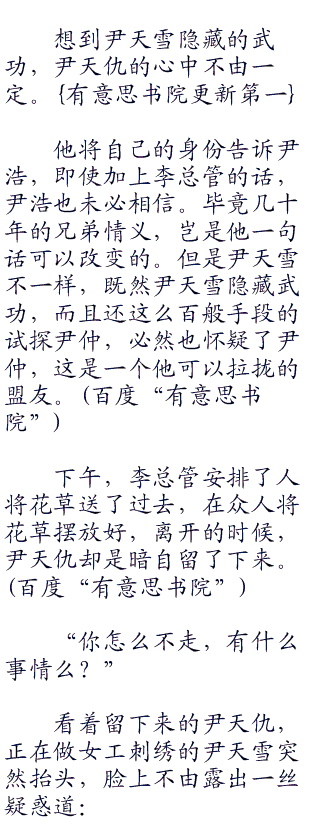 想到尹天雪隐藏的武
功，尹天仇的心中不由一
定。{有意思书院更新第一}
他将自己的身份告诉尹
浩，即使加上李总管的话，
尹浩也未必相信。毕竟几十
年的兄弟情义，岂是他一句
话可以改变的。但是尹天雪
不一样，既然尹天雪隐藏武
功，而且还这么百般手段的
试探尹仲，必然也怀疑了尹
仲，这是一个他可以拉拢的
盟友。(百度“有意思书
院”)
下午，李总管安排了人
将花草送了过去，在众人将
花草摆放好，离开的时候，
尹天仇却是暗自留了下来。
(百度“有意思书院”)
“你怎么不走，有什么
事情么？”
看着留下来的尹天仇，
正在做女工刺绣的尹天雪突
然抬头，脸上不由露出一丝
疑惑道：